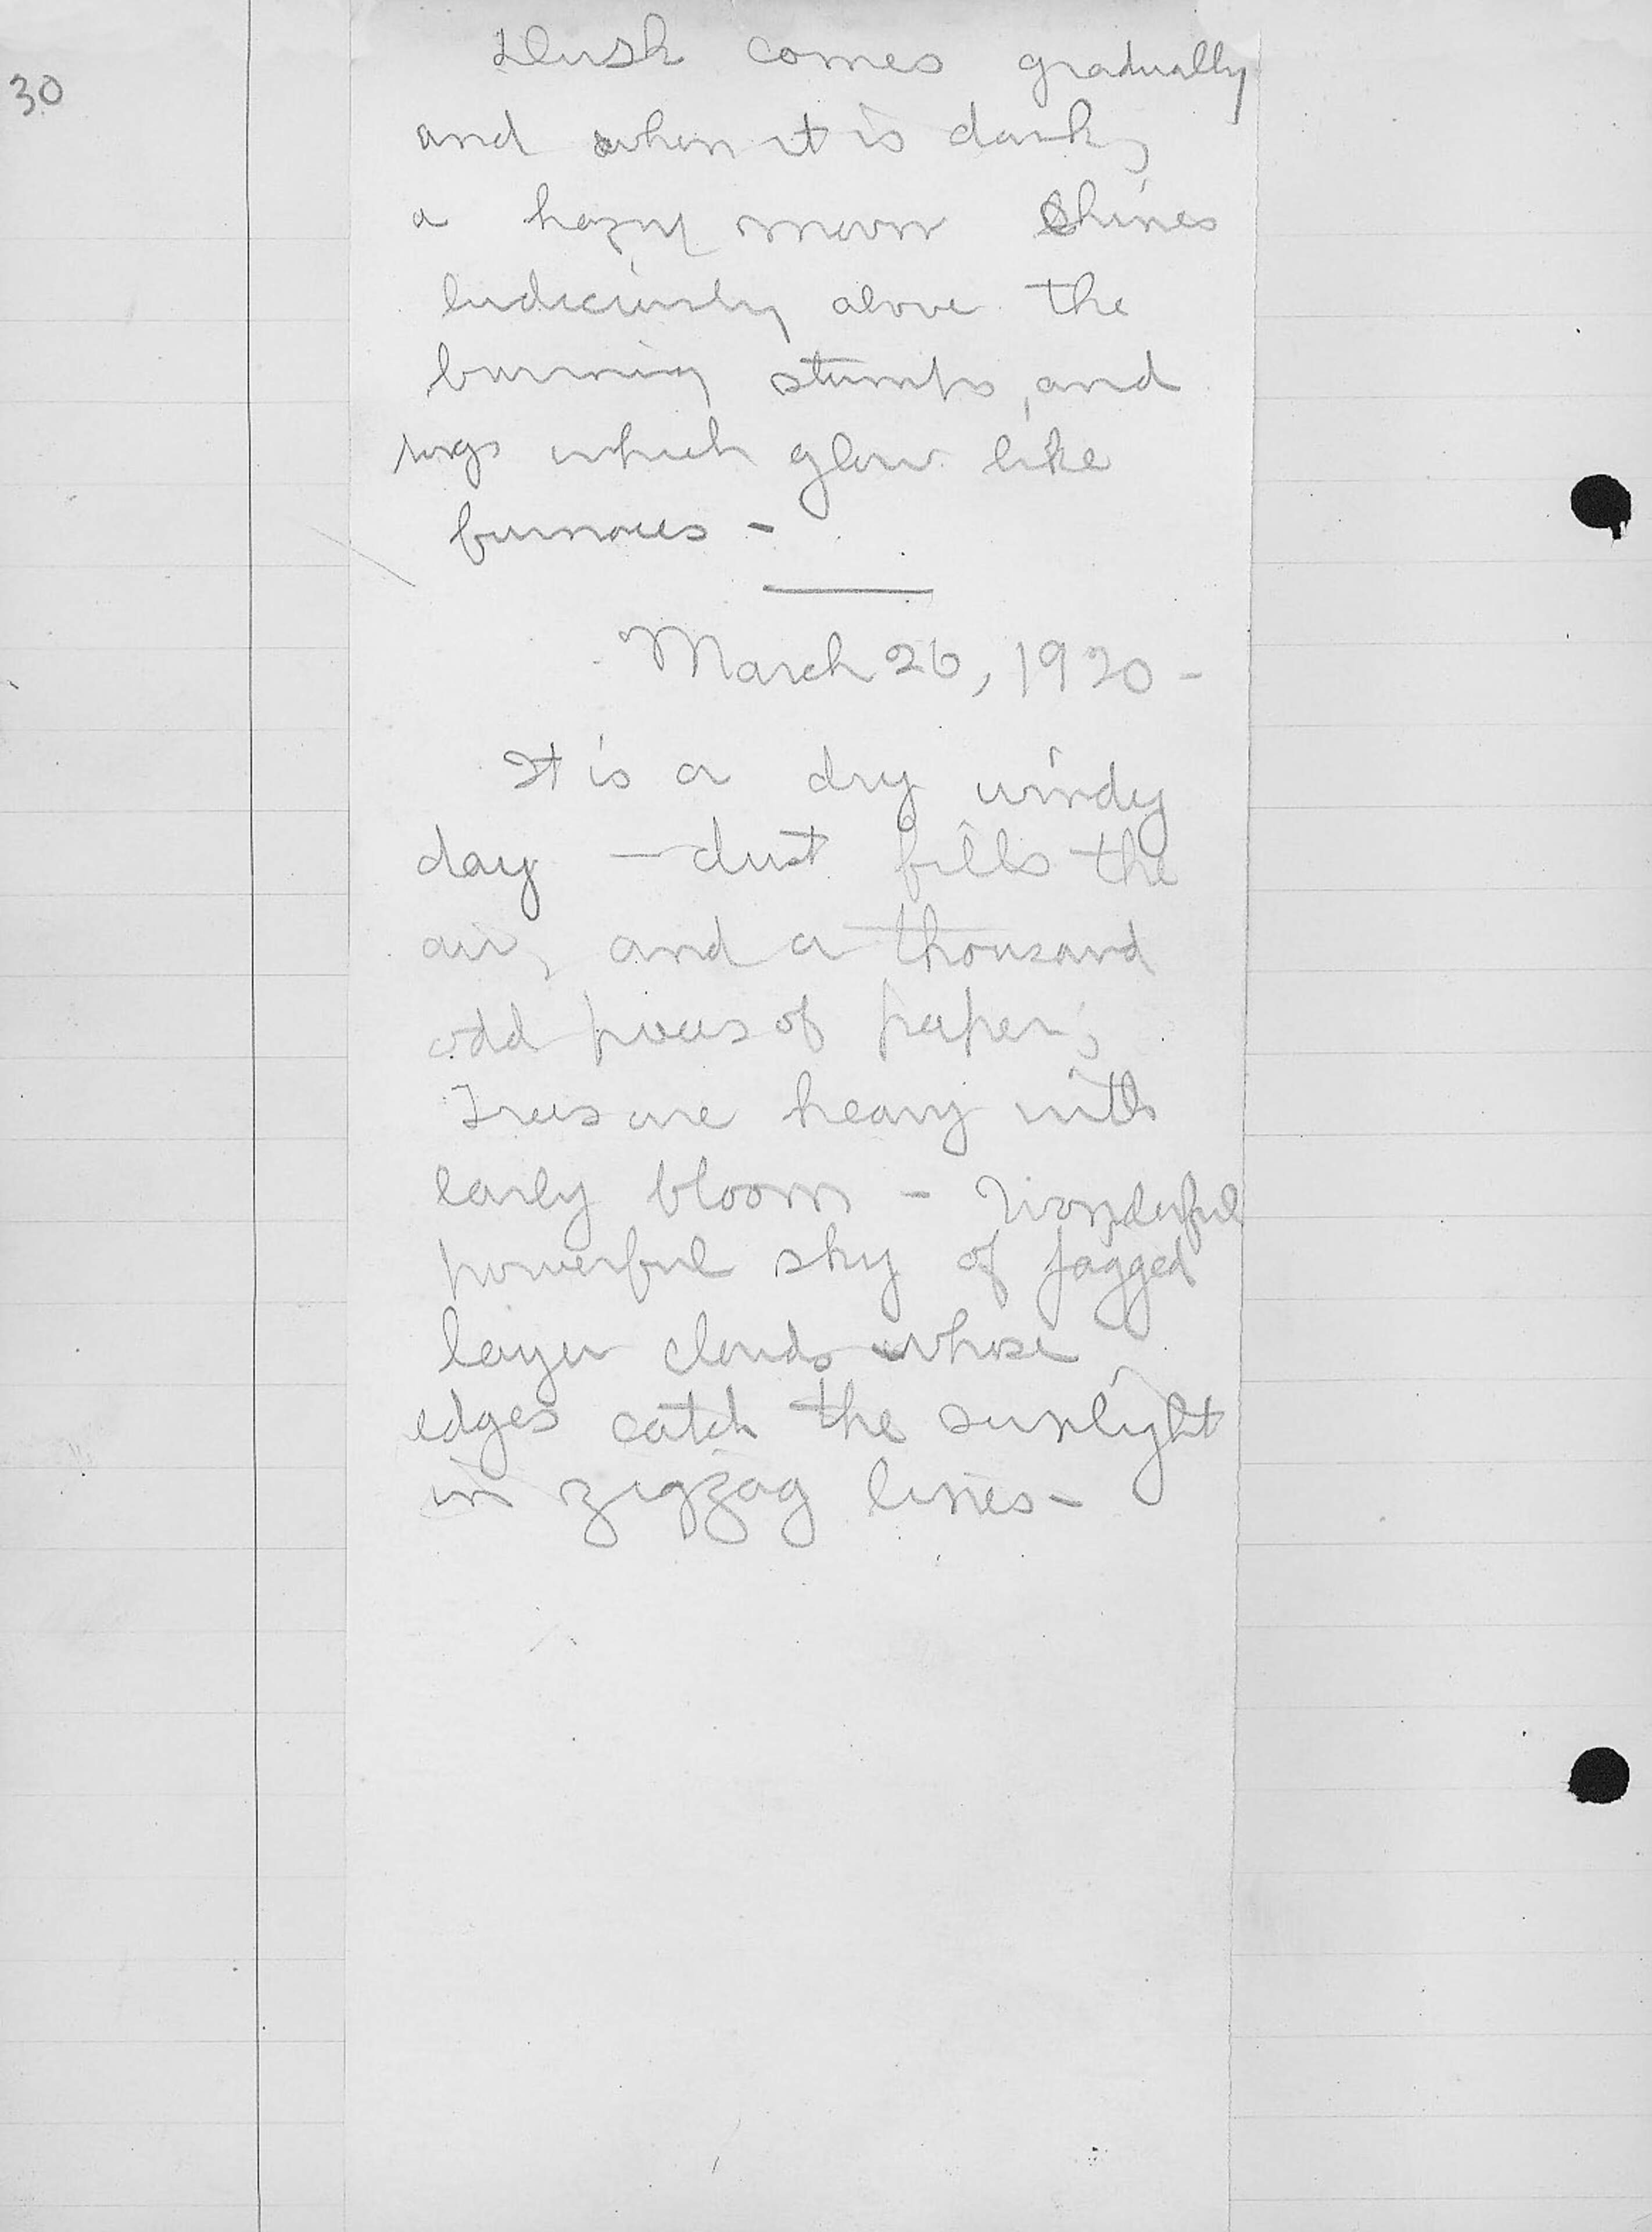 30
Dusk comes gradually
and when it is dark,
a hazy moon shines
above the
burning stumps, and
logs which glow like
furnaces -
March 26, 1920 -
It is a dry windy
day — dust fills the
air, and a thousand
odd pieces of paper;
Trees are heavy with
early bloom - Wonderful
powerful sky of jagged
layer clouds whose
edges catch the sunlight
in zigzag lines -